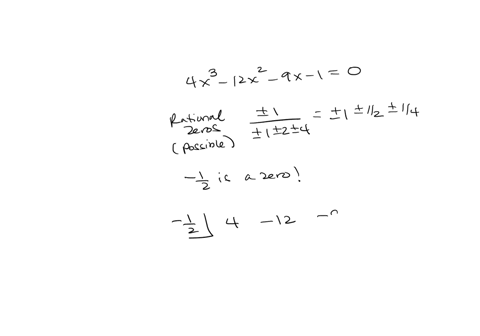 4x³ - 12x² - 9x - 1 = 0
Rational zeros (possible) ±1 / ±1 ±2 ±4 = ±1 ± 1/2 ± 1/4
-1/2 is a zero!
-1/2 | 4 -12